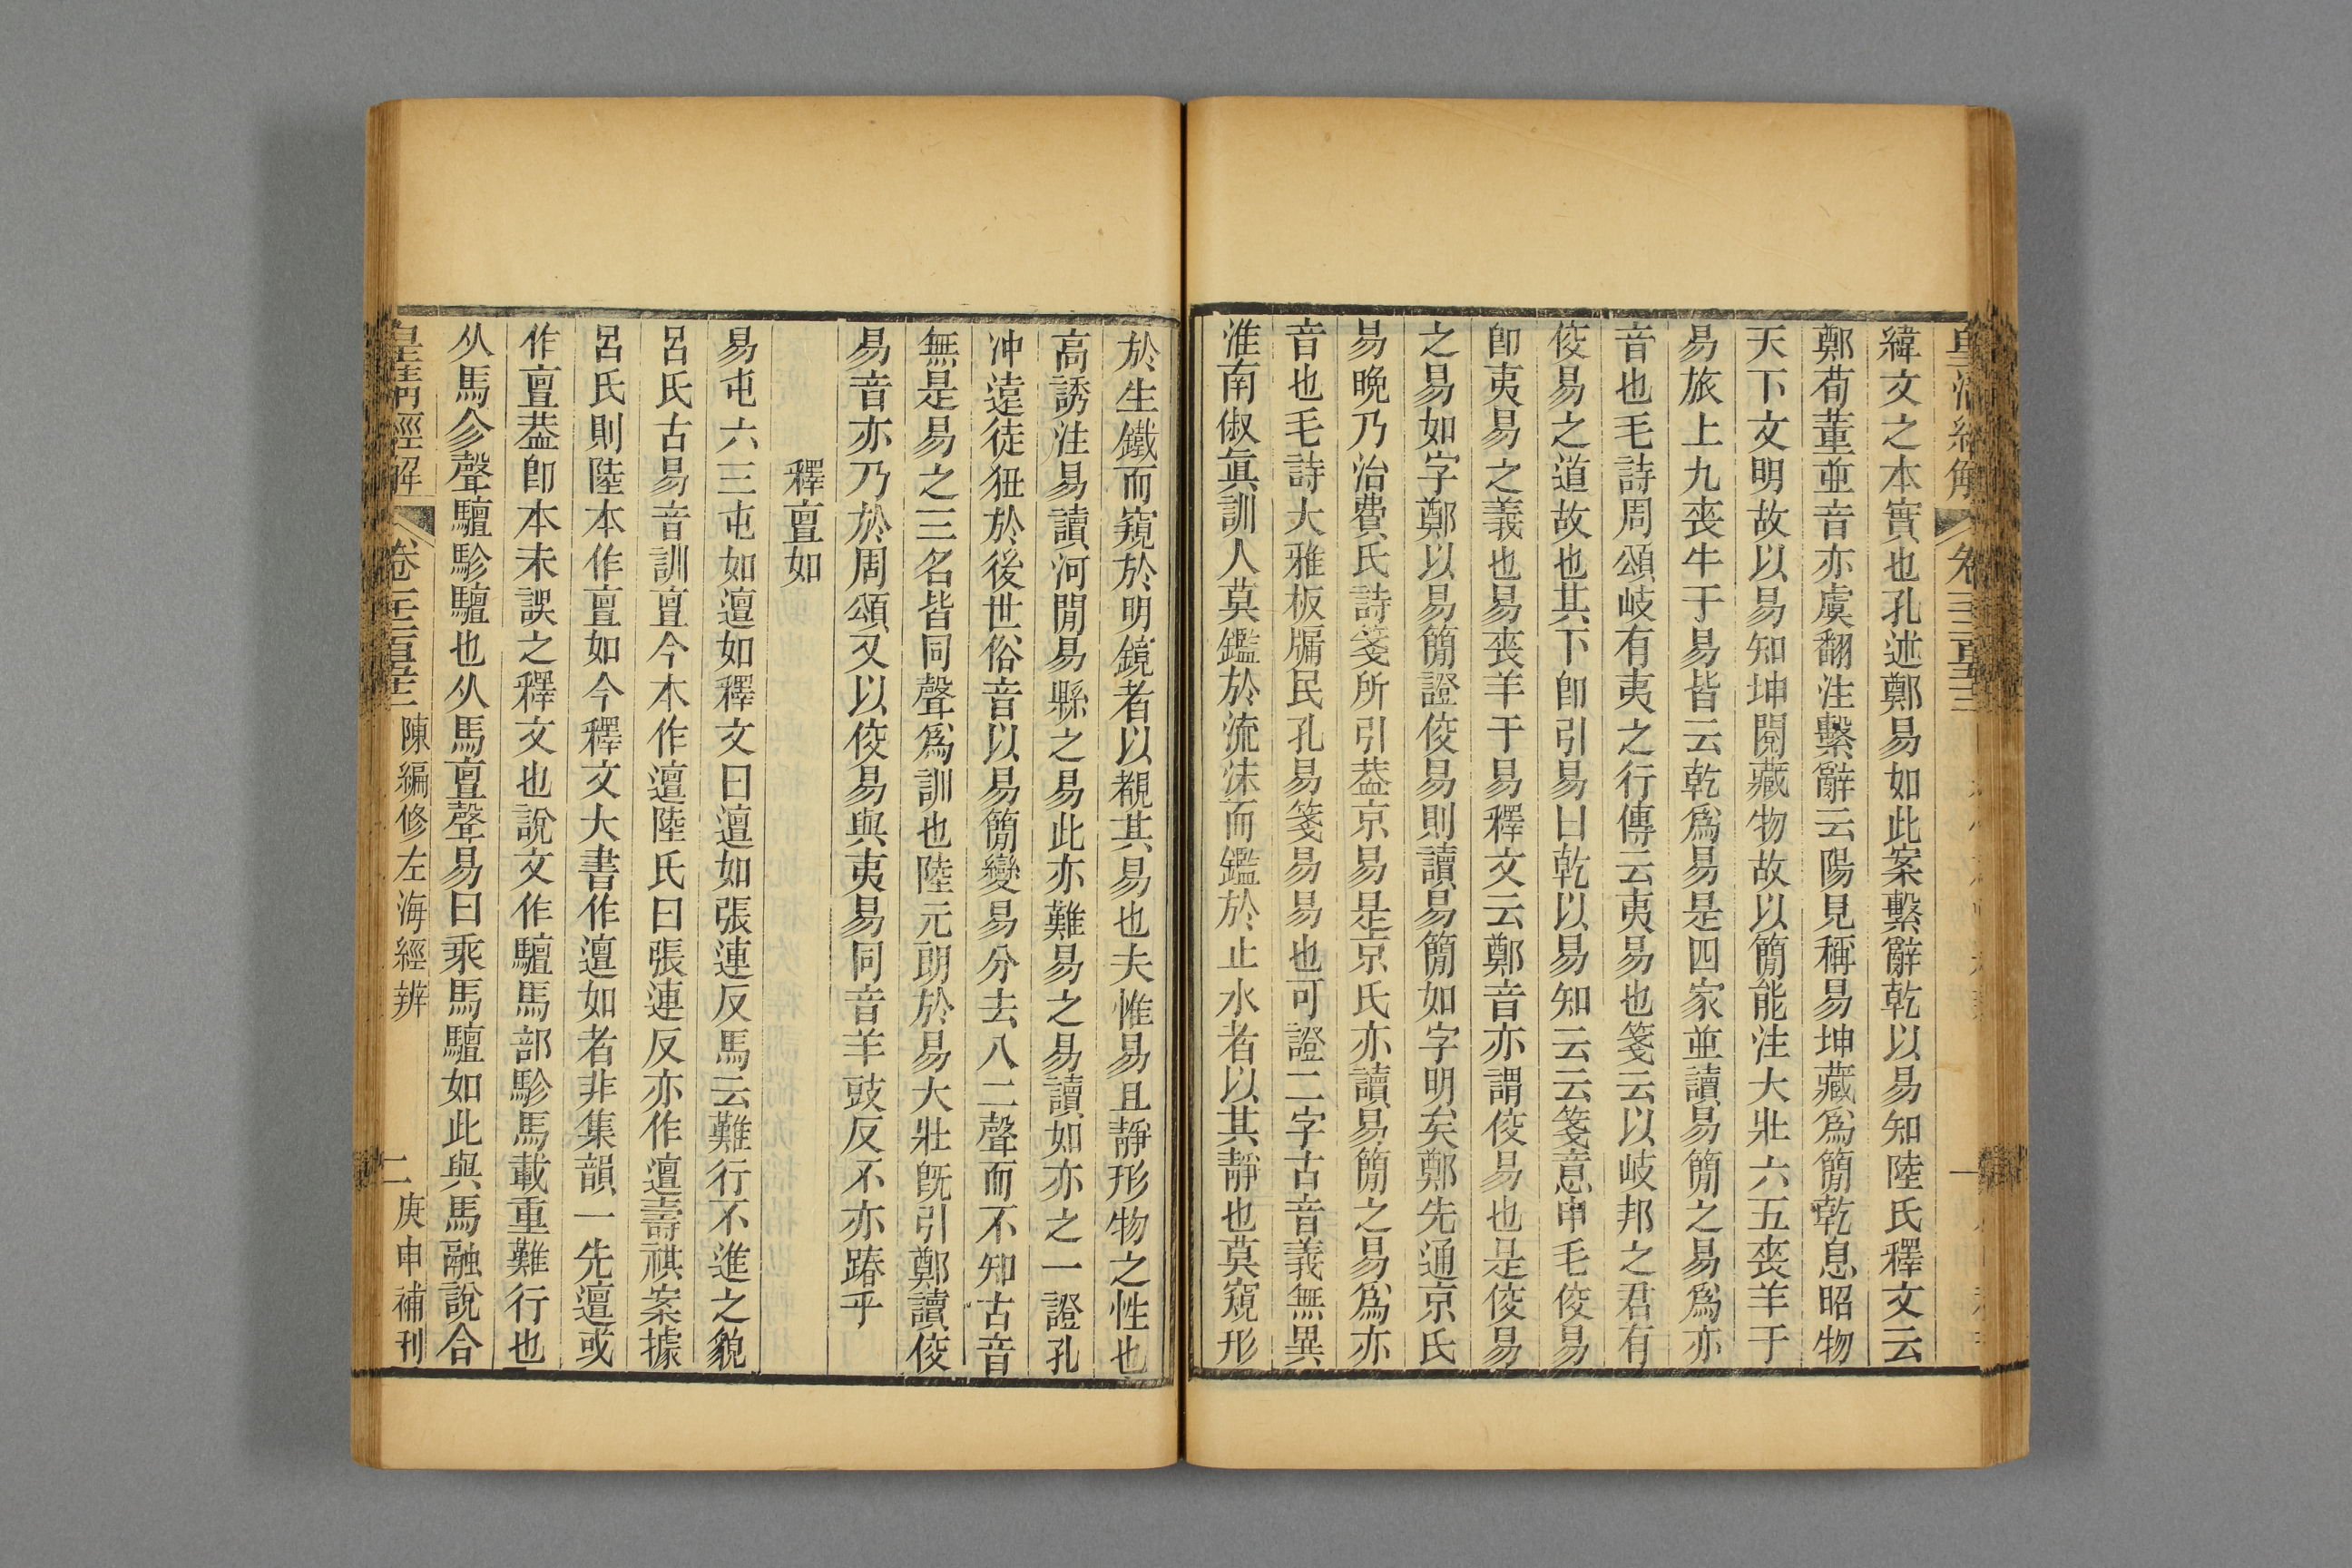 緯文之本實也孔述鄭易如此案繫辭乾以易知陸氏釋文云
鄭荀董並音亦虞翻注繫辭云陽見稱易坤藏爲簡乾息昭物
天下文明故以易知坤閱藏物故以簡能注大壯六五喪羊于
易旅上九喪牛于易皆云乾爲易是四家並讀易簡之易爲亦
音也毛詩周頌岐有夷之行傳云夷易也箋云以岐邦之君有
佼易之道故也其下卽引易曰乾以易知云云箋意申毛佼易
卽夷易之義也易喪羊于易釋文云鄭音亦謂佼易也是佼易
之易如字鄭以易簡證佼易則讀易簡如字明矣鄭先通京氏
易晚乃治費氏詩箋所引葢京易是京氏亦讀易簡之易爲亦
音也毛詩大雅板牖民孔易箋易易也可證二字古音義無異
淮南俶眞訓人莫鑑於流沫而鑑於止水者以其靜也莫窺形
於生鐵而窺於明鏡者以覩其易也夫惟易且靜形物之性也
高誘注易讀河閒易縣之易此亦難易之易讀如亦之一證孔
冲遠徒狃於後世俗音以易簡變易分去入二聲而不知古音
無是易之三名皆同聲爲訓也陸元朗於易大壯旣引鄭讀佼
易音亦乃於周頌又以佼易與夷易同音羊豉反不亦踳乎
釋亶如
易屯六三屯如邅如釋文曰邅如張連反馬云難行不進之貌
呂氏古易音訓亶今本作邅陸氏曰張連反亦作邅壽祺案據
呂氏則陸本作亶如今釋文大書作邅如者非集韻一先邅或
作亶葢卽本未誤之釋文也說文作驙馬部駗馬載重難行也
从馬㐱聲驙駗驙也从馬亶聲易曰乘馬驙如此與馬融說合
皇淸經解
卷一千二百五十三
陳編修左海經辨
二
庚申補刊